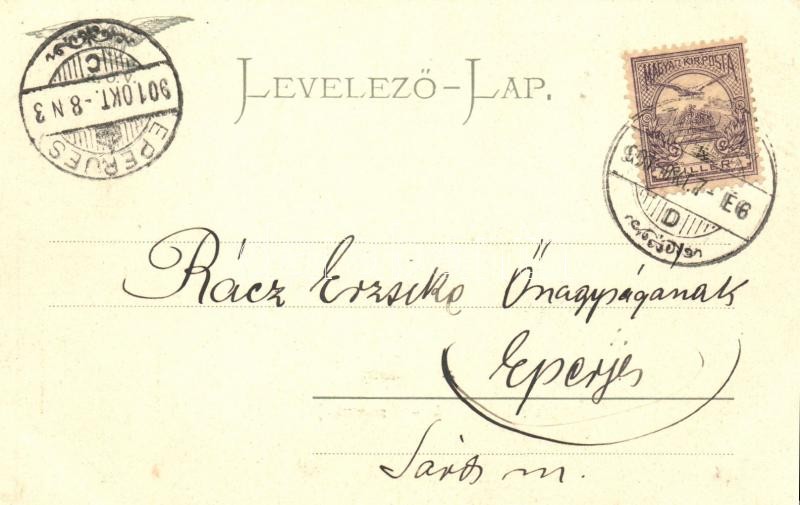 LEVELEZŐ-LAP.
MAGYAR KIR. POSTA
4
FILLÉR
EPERJES
901 OKT. -8 N 3
C
É6
D
Rácz Erzsike Önagyságanak
Eperjes
Sáros m.